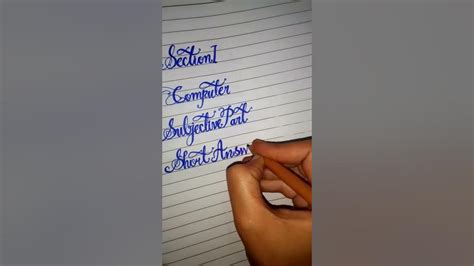 Section1
Computer
Subjective Part
Short Answ